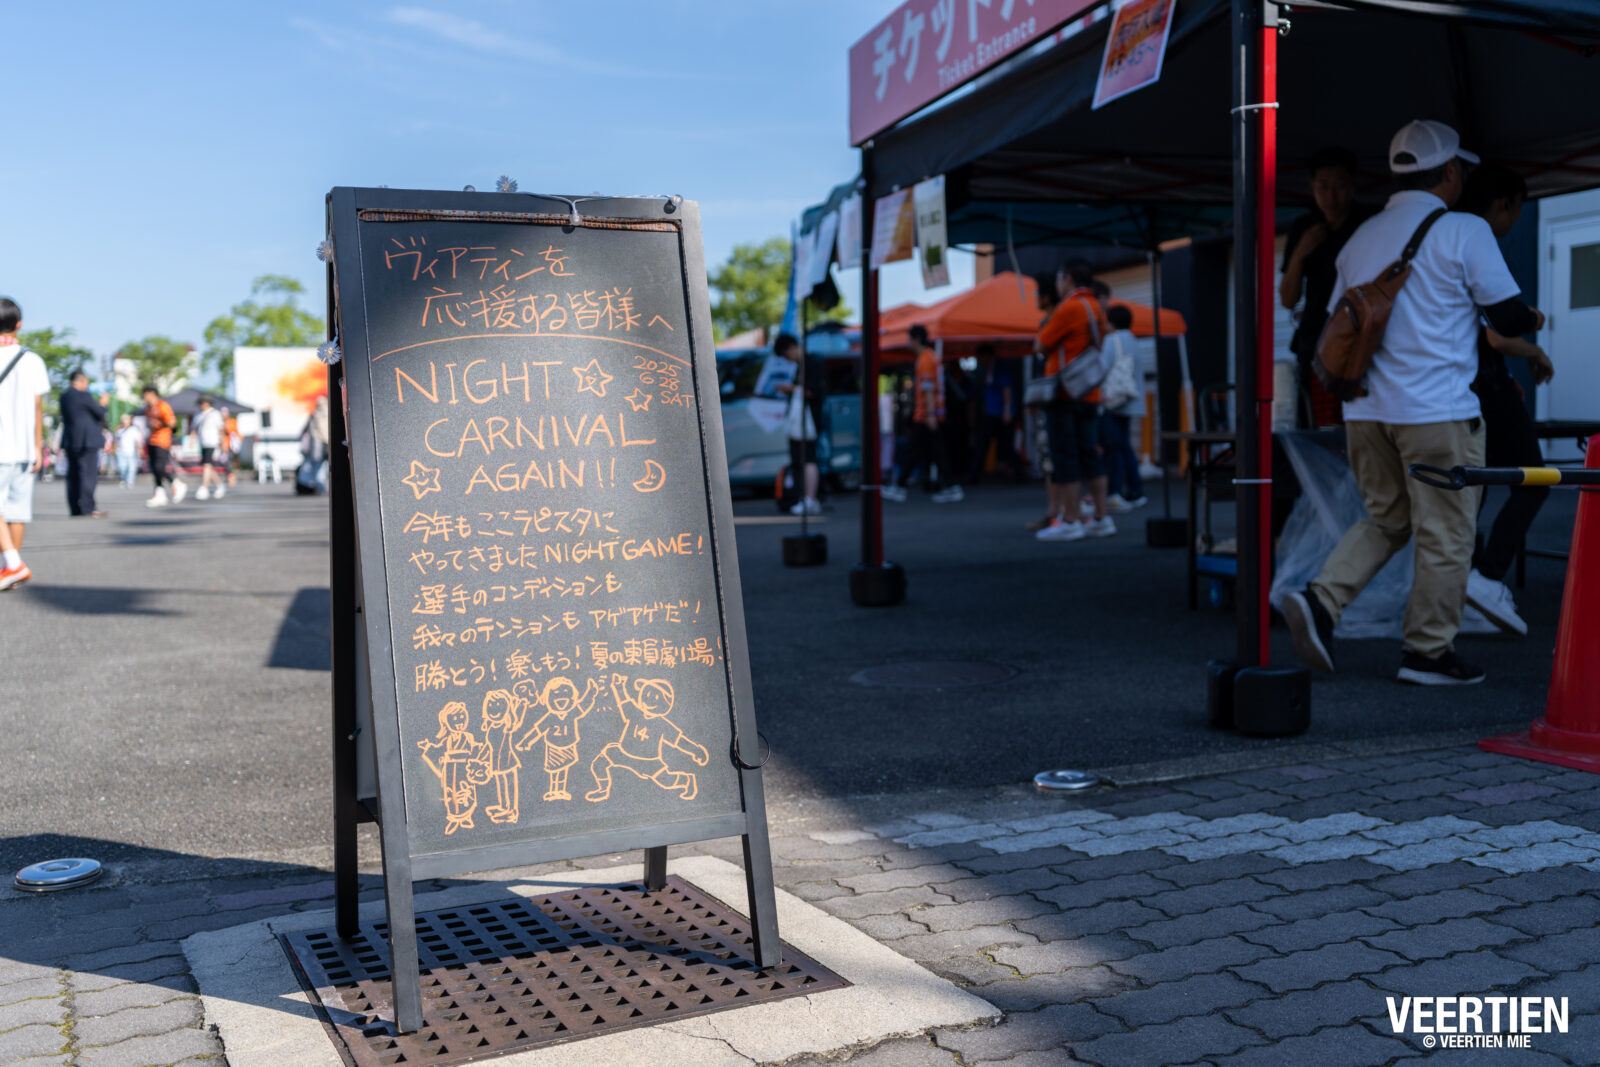 チケット
Ticket Entrance
VEERTIEN VEERTIEN VEERTIEN
ヴィアティンを
応援する皆様へ
NIGHT
2025
6 28
SAT
CARNIVAL
AGAIN!!
今年もここラピスタに
やってきましたNIGHT GAME!
選手のコンディションも
我々のテンションもアゲアゲだ!
勝とう!楽しもう!夏の東員劇場!
21
14
VEERTIEN
© VEERTIEN MIE